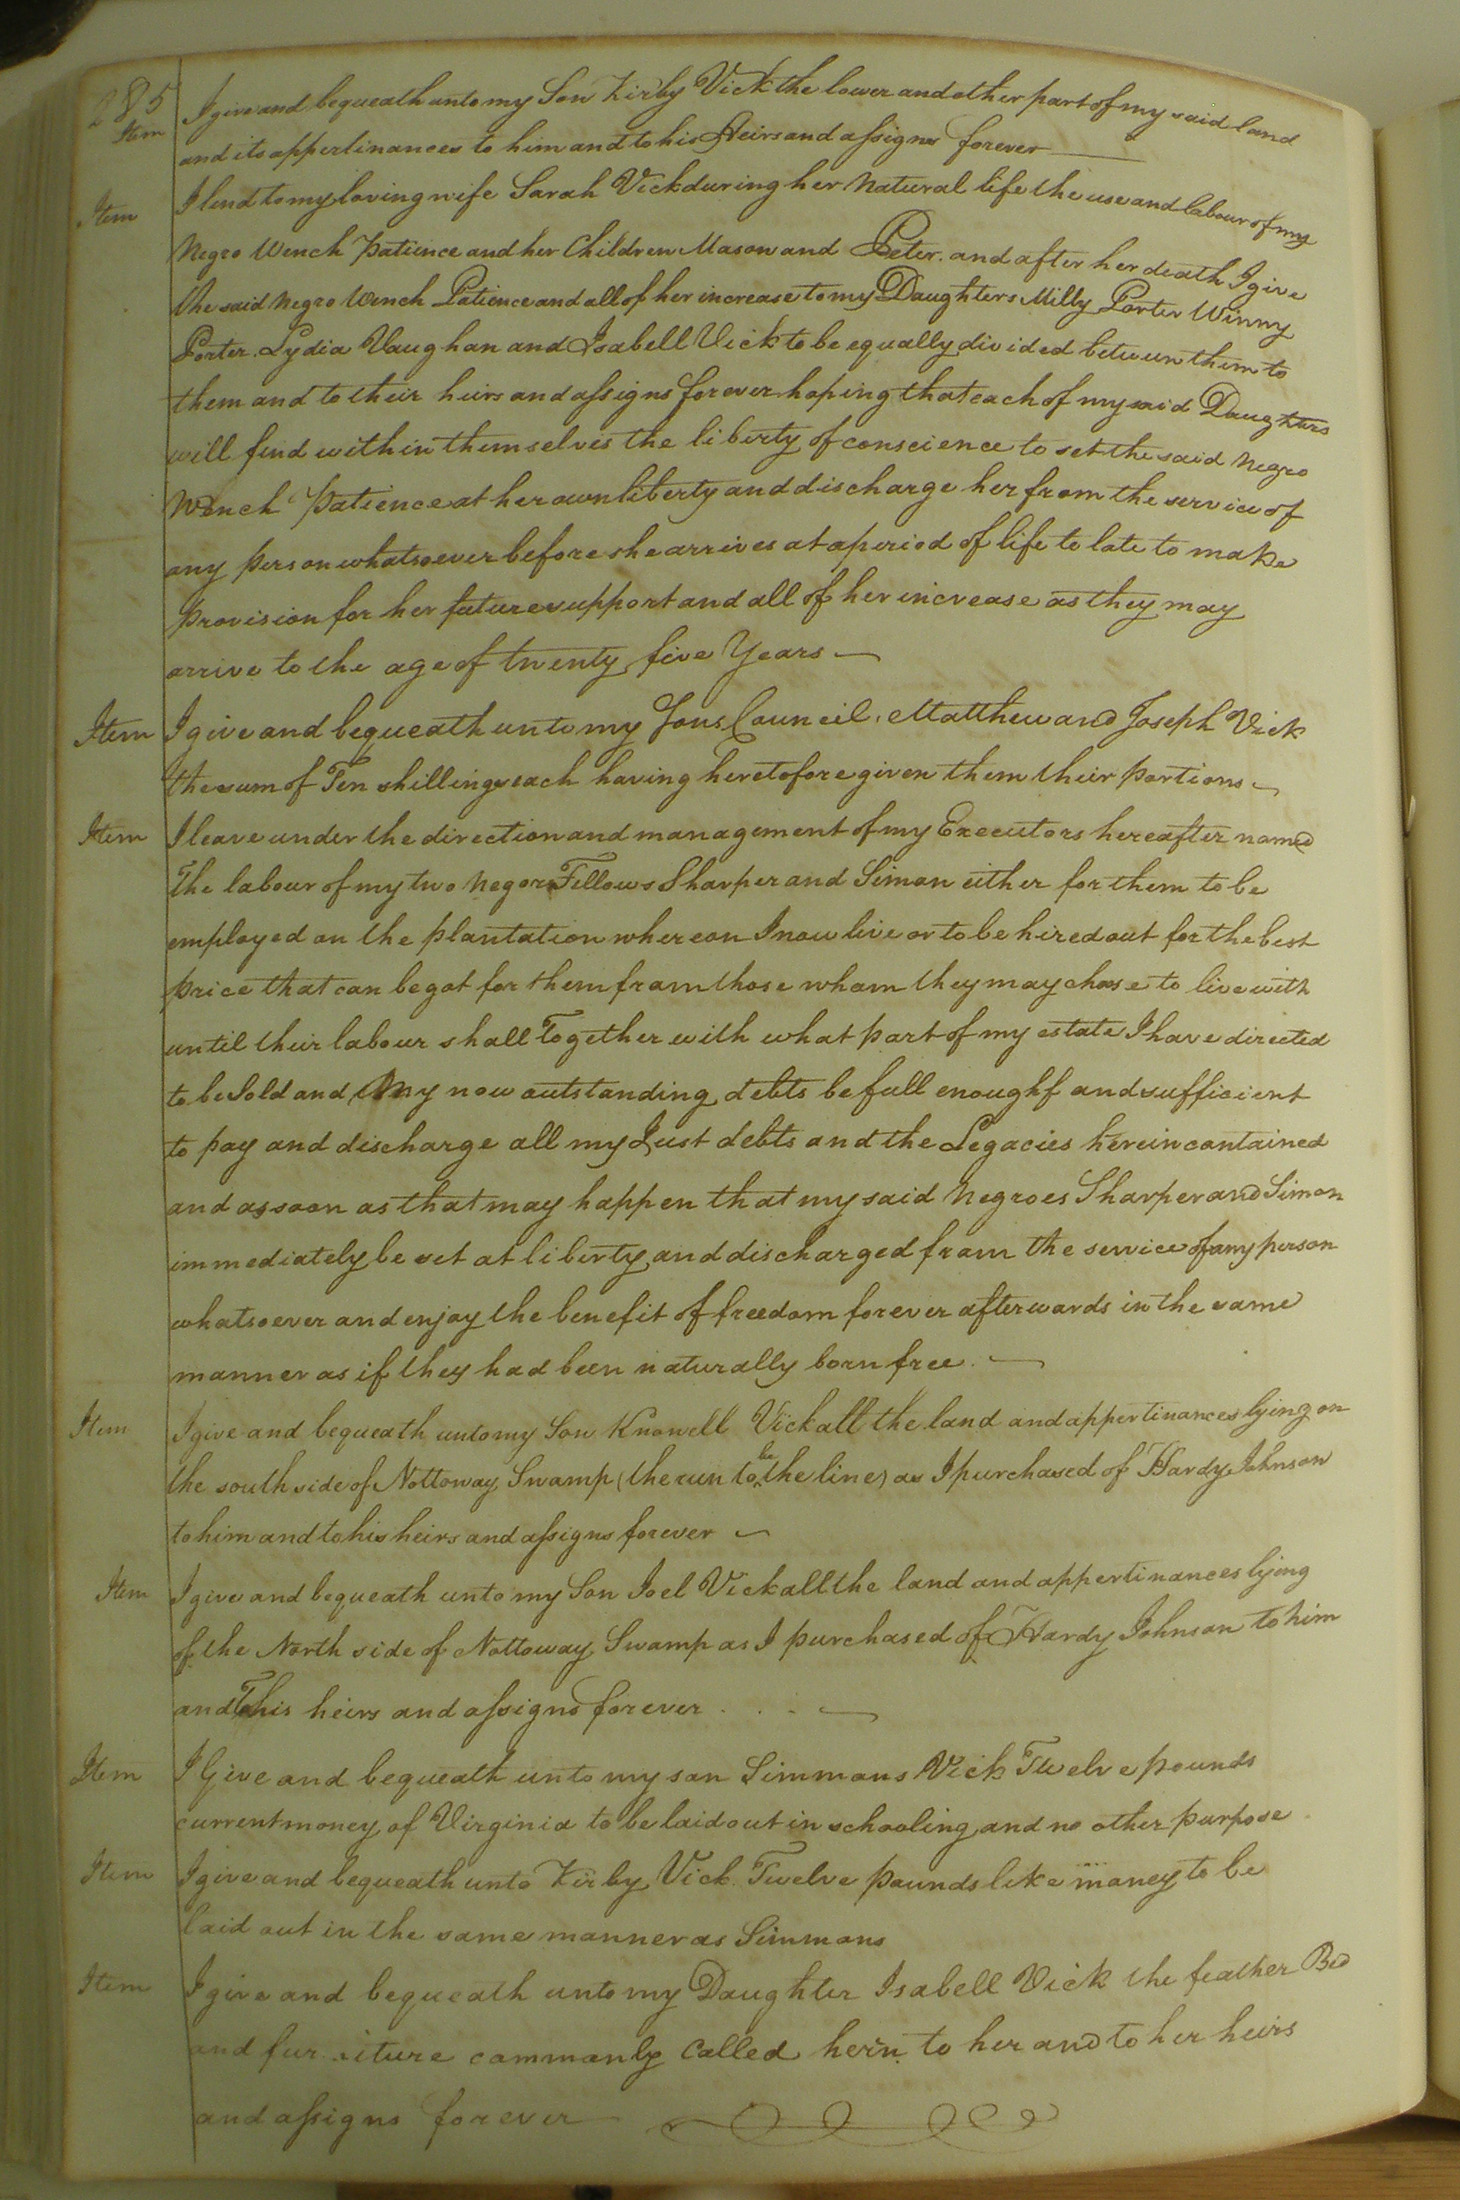 285
Item I give and bequeath unto my Son Kirby Vick the lower and other part of my said land
and its appertinances to him and to his Heirs and assigns forever
Item I lend to my loving wife Sarah Vick during her Natural life the use and labour of my
Negro Wench Patience and her Children Mason and Peter. and after her death I give
the said Negro Wench Patience and all of her increase to my Daughters Milly Porter Winny
Porter. Lydia Vaughan and Isabell Vick to be equally divided between them to
them and to their heirs and assigns forever hoping that each of my said Daughters
will find within themselves the liberty of conscience to set the said Negro
Wench Patience at her own liberty and discharge her from the service of
any person whatsoever before she arrives at a period of life to late to make
provision for her future support and all of her increase as they may
arrive to the age of twenty five Years
Item I give and bequeath unto my Sons Council, Matthew and Joseph Vick
the sum of Ten shillings each having heretofore given them their portions
Item I leave under the direction and management of my Executors hereafter named
The labour of my two Negors Fellows Sharper and Simon either for them to be
employed on the plantation whereon I now live or to be hired out for the best
price that can be got for them from those whom they may chose to live with
until their labour shall Together with what part of my estate I have directed
to be Sold and My now outstanding debts be full enoughf and sufficient
to pay and discharge all my Just debts and the Legacies herein contained
and as soon as that may happen that my said Negroes Sharper and Simon
immediately be set at liberty and discharged from the service of any person
whatsoever and enjoy the benefit of freedom forever afterwards in the same
manner as if they had been naturally born free.
Item I give and bequeath unto my Son Knowell Vick all the land and appertinances lying on
the south side of Nottoway Swamp (the run to be the line) as I purchased of Hardy Johnson
to him and to his heirs and assigns forever
Item I give and bequeath unto my Son Joel Vick all the land and appertinances lying
of the North side of Nottoway Swamp as I purchased of Hardy Johnson to him
and To his heirs and assigns forever . . . .
Item I Give and bequeath unto my son Simmons Vick Twelve pounds
current money of Virginia to be laid out in schooling and no other purpose
Item I give and bequeath unto Kirby Vick. Twelve pounds like money to be
laid out in the same manner as Simmons
Item I give and bequeath unto my Daughter Isabell Vick the feather Bed
and furniture commanly Called hern to her and to her heirs
and assigns forever